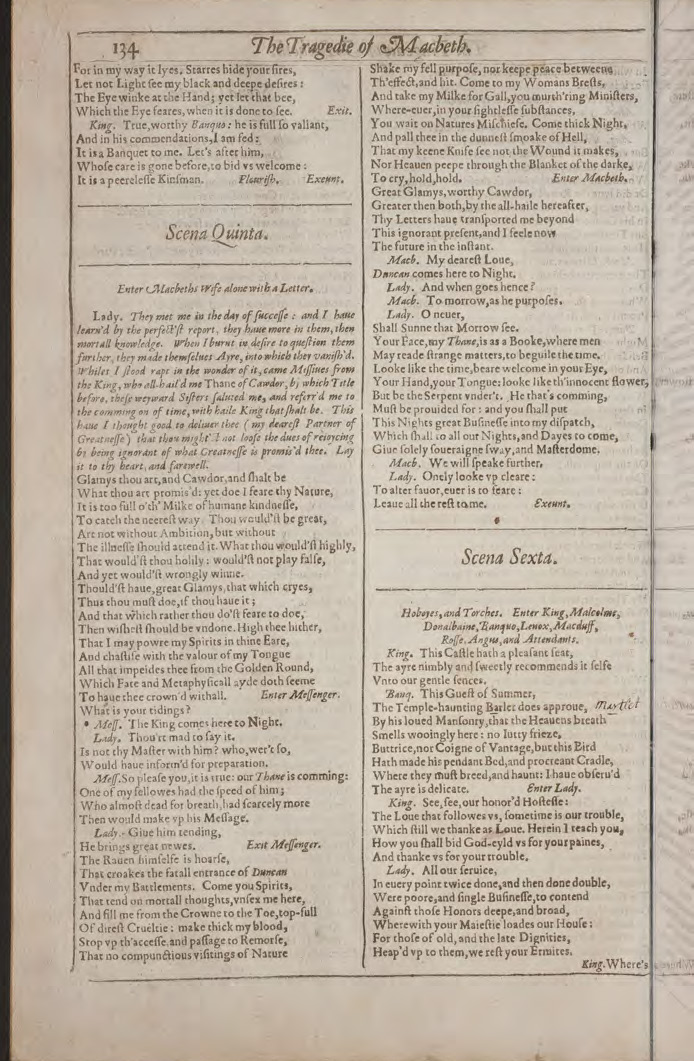 134
The Tragedie of Macbeth.
For in my way it lyes. Starres hide your fires,
Let not Light see my black and deepe desires:
The Eye winke at the Hand; yet let that bee,
Which the Eye feares, when it is done to see. Exit.
King. True, worthy Banquo: he is full so valiant,
And in his commendations, I am fed:
It is a Banquet to me. Let's after him,
Whose care is gone before, to bid vs welcome:
It is a peerelesse Kinsman. Flourish. Exeunt.
Scena Quinta.
Enter Macbeths Wife alone with a Letter.
Lady. They met me in the day of successe: and I haue
learn'd by the perfect'st report, they haue more in them, then
mortall knowledge. When I burnt in desire to question them
further, they made themselues Ayre, into which they vanish'd.
Whiles I stood rapt in the wonder of it, came Missiues from
the King, who all-hail'd me Thane of Cawdor, by which Title
before, these weyward Sisters saluted me, and referr'd me to
the comming on of time, with haile King that shalt be. This
haue I thought good to deliuer thee (my dearest Partner of
Greatnesse) that thou might'st not loose the dues of reioycing
by being ignorant of what Greatnesse is promis'd thee. Lay
it to thy heart, and farewell.
Glamys thou art, and Cawdor, and shalt be
What thou art promis'd: yet doe I feare thy Nature,
It is too full o'th' Milke of humane kindnesse,
To catch the neerest way. Thou would'st be great,
Art not without Ambition, but without
The illnesse should attend it. What thou would'st highly,
That would'st thou holily: would'st not play false,
And yet would'st wrongly winne.
Thould'st haue, great Glamys, that which cryes,
Thus thou must doe, if thou haue it;
And that which rather thou do'st feare to doe,
Then wishest should be vndone. High thee hither,
That I may powre my Spirits in thine Eare,
And chastise with the valour of my Tongue
All that impeides thee from the Golden Round,
Which Fate and Metaphysicall ayde doth seeme
To haue thee crown'd withall. Enter Messenger.
What is your tidings?
Mess. The King comes here to Night.
Lady. Thou'rt mad to say it.
Is not thy Master with him? who, wer't so,
Would haue inform'd for preparation.
Mess. So please you, it is true: our Thane is comming:
One of my fellowes had the speed of him;
Who almost dead for breath, had scarcely more
Then would make vp his Message.
Lady. Giue him tending,
He brings great newes. Exit Messenger.
The Rauen himselfe is hoarse,
That croakes the fatall entrance of Duncan
Vnder my Battlements. Come you Spirits,
That tend on mortall thoughts, vnsex me here,
And fill me from the Crowne to the Toe, top-full
Of direst Crueltie: make thick my blood,
Stop vp th'accesse, and passage to Remorse,
That no compunctious visitings of Nature
Shake my fell purpose, nor keepe peace betweene
Th'effect, and hit. Come to my Womans Brests,
And take my Milke for Gall, you murth'ring Ministers,
Where-euer, in your sightlesse substances,
You wait on Natures Mischiefe. Come thick Night,
And pall thee in the dunnest smoake of Hell,
That my keene Knife see not the Wound it makes,
Nor Heauen peepe through the Blanket of the darke,
To cry, hold, hold. Enter Macbeth.
Great Glamys, worthy Cawdor,
Greater then both, by the all-haile hereafter,
Thy Letters haue transported me beyond
This ignorant present, and I feele now
The future in the instant.
Macb. My dearest Loue,
Duncan comes here to Night.
Lady. And when goes hence?
Macb. To morrow, as he purposes.
Lady. O neuer,
Shall Sunne that Morrow see.
Your Face, my Thane, is as a Booke, where men
May reade strange matters, to beguile the time.
Looke like the time, beare welcome in your Eye,
Your Hand, your Tongue: looke like th'innocent flower,
But be the Serpent vnder't. He that's comming,
Must be prouided for: and you shall put
This Nights great Businesse into my dispatch,
Which shall to all our Nights, and Dayes to come,
Giue solely soueraigne sway, and Masterdome.
Macb. We will speake further,
Lady. Onely looke vp cleare:
To alter fauor, euer is to feare:
Leaue all the rest to me. Exeunt.
Scena Sexta.
Hoboyes, and Torches. Enter King, Malcolme,
Donalbaine, Banquo, Lenox, Macduff,
Rosse, Angus, and Attendants.
King. This Castle hath a pleasant seat,
The ayre nimbly and sweetly recommends it selfe
Vnto our gentle sences.
Banq. This Guest of Summer,
The Temple-haunting Barlet does approue, Martlet
By his loued Mansonry, that the Heauens breath
Smells wooingly here: no Iutty frieze,
Buttrice, nor Coigne of Vantage, but this Bird
Hath made his pendant Bed, and procreant Cradle,
Where they must breed, and haunt: I haue obseru'd
The ayre is delicate. Enter Lady.
King. See, see, our honor'd Hostesse:
The Loue that followes vs, sometime is our trouble,
Which still we thanke as Loue. Herein I teach you,
How you shall bid God-eyld vs for your paines,
And thanke vs for your trouble.
Lady. All our seruice,
In euery point twice done, and then done double,
Were poore, and single Businesse, to contend
Against those Honors deepe, and broad,
Wherewith your Maiestie loades our House:
For those of old, and the late Dignities,
Heap'd vp to them, we rest your Ermites.
King. Where's